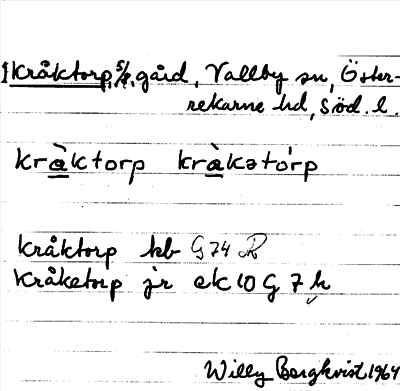 Kråktorp, s/ö, gård, Vallby sn, Öster-
rekarne hd, Söd. l.
krå̀ktorp kràkətórp
Kråktorp hb G 74
Kråketorp jr ek 10 G 7 h
Willy Bergkvist 1964